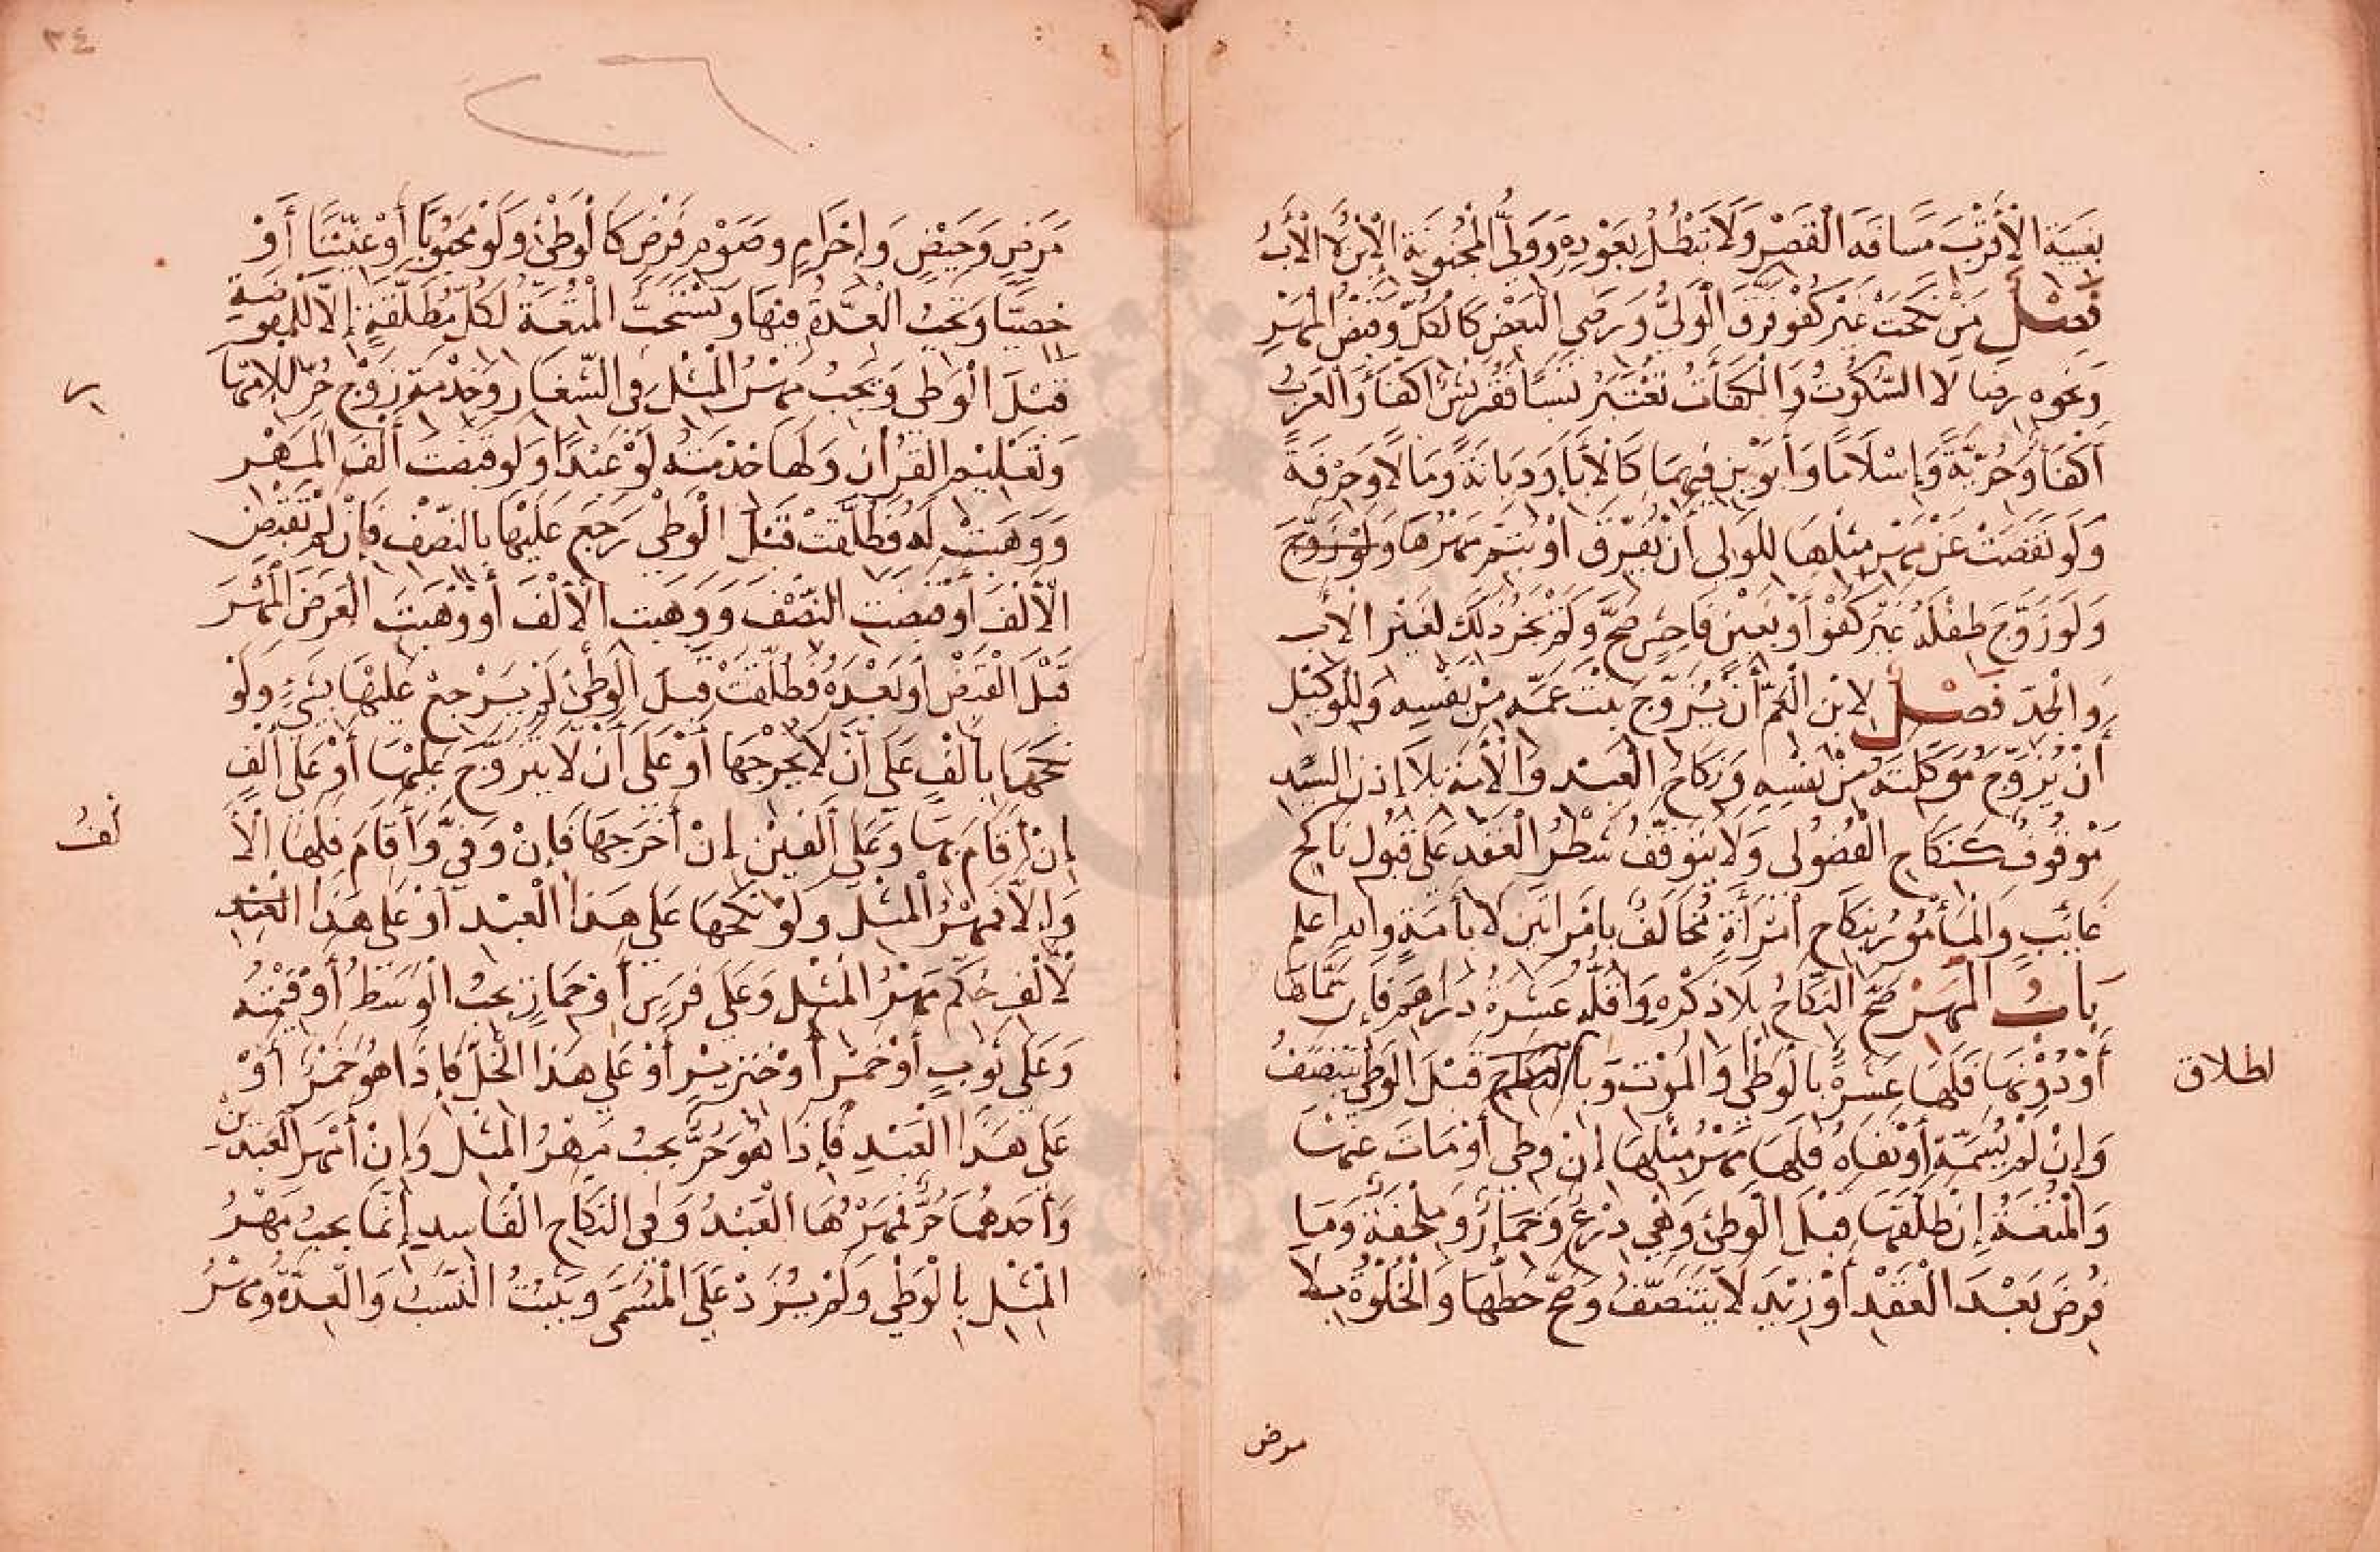 بغيبة الأقرب مسافة القصر ولا تبطل بعوده وولي المجنونة الابن لا الأب
فصل من نكحت غير كفو فرق الولي ورضى البعض كالكل وقبض المهر
ونحوه رضا لا السكوت والكفأت تعتبر نسبا فقريش أكفأ والعرب
أكفأ وحرية وإسلاما وأبوين فيهما كالأباء وديانة ومالا وحرفة
ولو نقصت عن مهر مثلها للولي أن يفرق أو يتم مهرها ولو زوج
ولو زوج طفله غير كفو أو بغبن فاحش صح ولم يجز ذلك لغير الأب
والجد فصل لابن العم أن يزوج بنت عمه من نفسه وللوكيل
أن يزوج موكلته من نفسه ونكاح العبد والأمة بلا إذن السيد
موقوف كنكاح الفضولي ولا يتوقف شطر العقد على قبول ناكح
غائب والمأمور بنكاح امرأة مخالف بامراتين لا بأمة والله اعلم
باب المهر صح النكاح بلا ذكره وأقله عشرة دراهم فإن سماها
أو دونها فلها عشرة بالوطئ والموت وبالنكاح قبل الوطي يتنصف
لطلاق
وإن لم يسمه أو نفاه فلها مهر مثلها إن وطي أو مات عنها
والمتعة إن طلقها قبل الوطئ وهي درع وخمار وملحفة وما
فرض بعد العقد أو زيد لا يتنصف وصح حطها والخلوة بلا
مرض
٣٤
٢٦
مرض وحيض وإحرام وصوم فرض كالوطئ ولو مجبوبا أو عنينا أو
خصيا وتجب العدة فيها وتستحب المتعة لكل مطلقة إلا للمفوضة
قبل الوطي ويجب مهر المثل في الشغار وخدمة زوج حر للامهار
وتعليم القرآن ولها خدمته لو عبدا ولو قبضت ألف المهر
ووهبت له فطلقت قبل الوطي رجع عليها بالنصف فإن لم تقبض
الألف أو قبضت النصف ووهبت الألف أو وهبت العرض المهر
قبل القبض أو بعده فطلقت قبل الوطئ لم يرجع عليها بشيء ولو
نكحها بألف على أن لا يخرجها أو على أن لا يتزوج عليها أو على ألف
إن أقام بها وعلى ألفين إن أخرجها فإن وفى وأقام فلها الأ
لف
وإلا فمهر المثل ولو نكحها على هذا العبد أو على هذا العبد
لألف حكم مهر المثل وعلى فرس أو حمار يجب الوسط أو قيمته
وعلى ثوب أو خمر أو خنزير أو على هذا الخل فإذا هو خمر أو
على هذا العبد فإذا هو حر يجب مهر المثل وإن أمهر العبدين
وأحدهما حر فمهرها العبد وفي النكاح الفاسد إنما يجب مهر
المثل بالوطي ولم يزد على المسمى ويثبت النسب والعدة ومهر